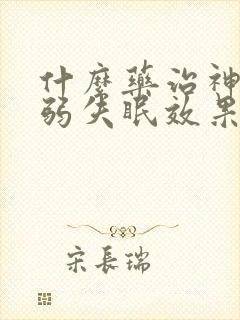 什麼藥治神
弱失眠效果
宋長瑞